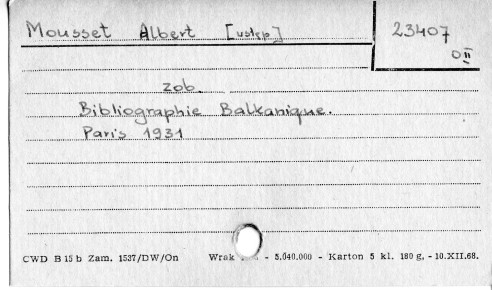 Mousset Albert [wstęp] 23407
OII
zob.
Bibliographie Balkanique.
Paris 1931
CWD B 15 b Zam. 1537/DW/On Wrak - 5.040.000 - Karton 5 kl. 180 g, - 10.XII.68.